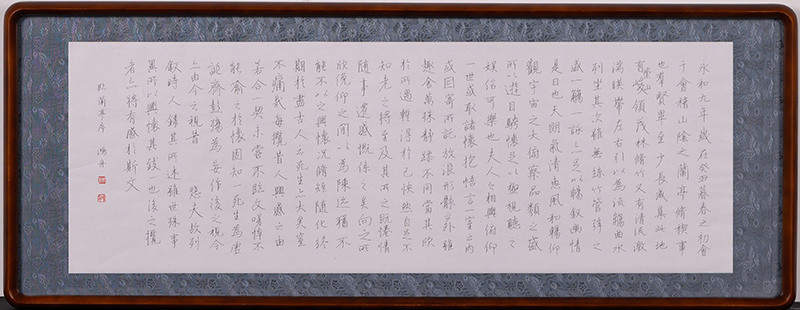 永和九年歲在癸丑暮春之初會
于會稽山陰之蘭亭脩稧事
也羣賢畢至少長咸集此地
有崇山峻領茂林脩竹又有清流激
湍暎帶左右引以為流觴曲水
列坐其次雖無絲竹管絃之
盛一觴一詠亦足以暢敘幽情
是日也天朗氣清惠風和暢仰
觀宇宙之大俯察品類之盛
所以遊目騁懷足以極視聽之
娛信可樂也夫人之相與俯仰
一世或取諸懷抱悟言一室之內
或因寄所託放浪形骸之外雖
趣舍萬殊靜躁不同當其欣
於所遇輒得於己怏然自足不
知老之將至及其所之既惓情
隨事遷感慨係之矣向之所
欣俛仰之間以為陳迹猶不
能不以之興懷況脩短隨化終
期於盡古人云死生亦大矣豈
不痛哉每攬昔人興感之由
若合一契未嘗不臨文嗟悼不
能喻之於懷固知一死生為虛
誕齊彭殤為妄作後之視今
亦由今之視昔 悲夫故列
敘時人錄其所述雖世殊事
異所以興懷其致一也後之攬
者亦將有感於斯文
臨蘭亭序